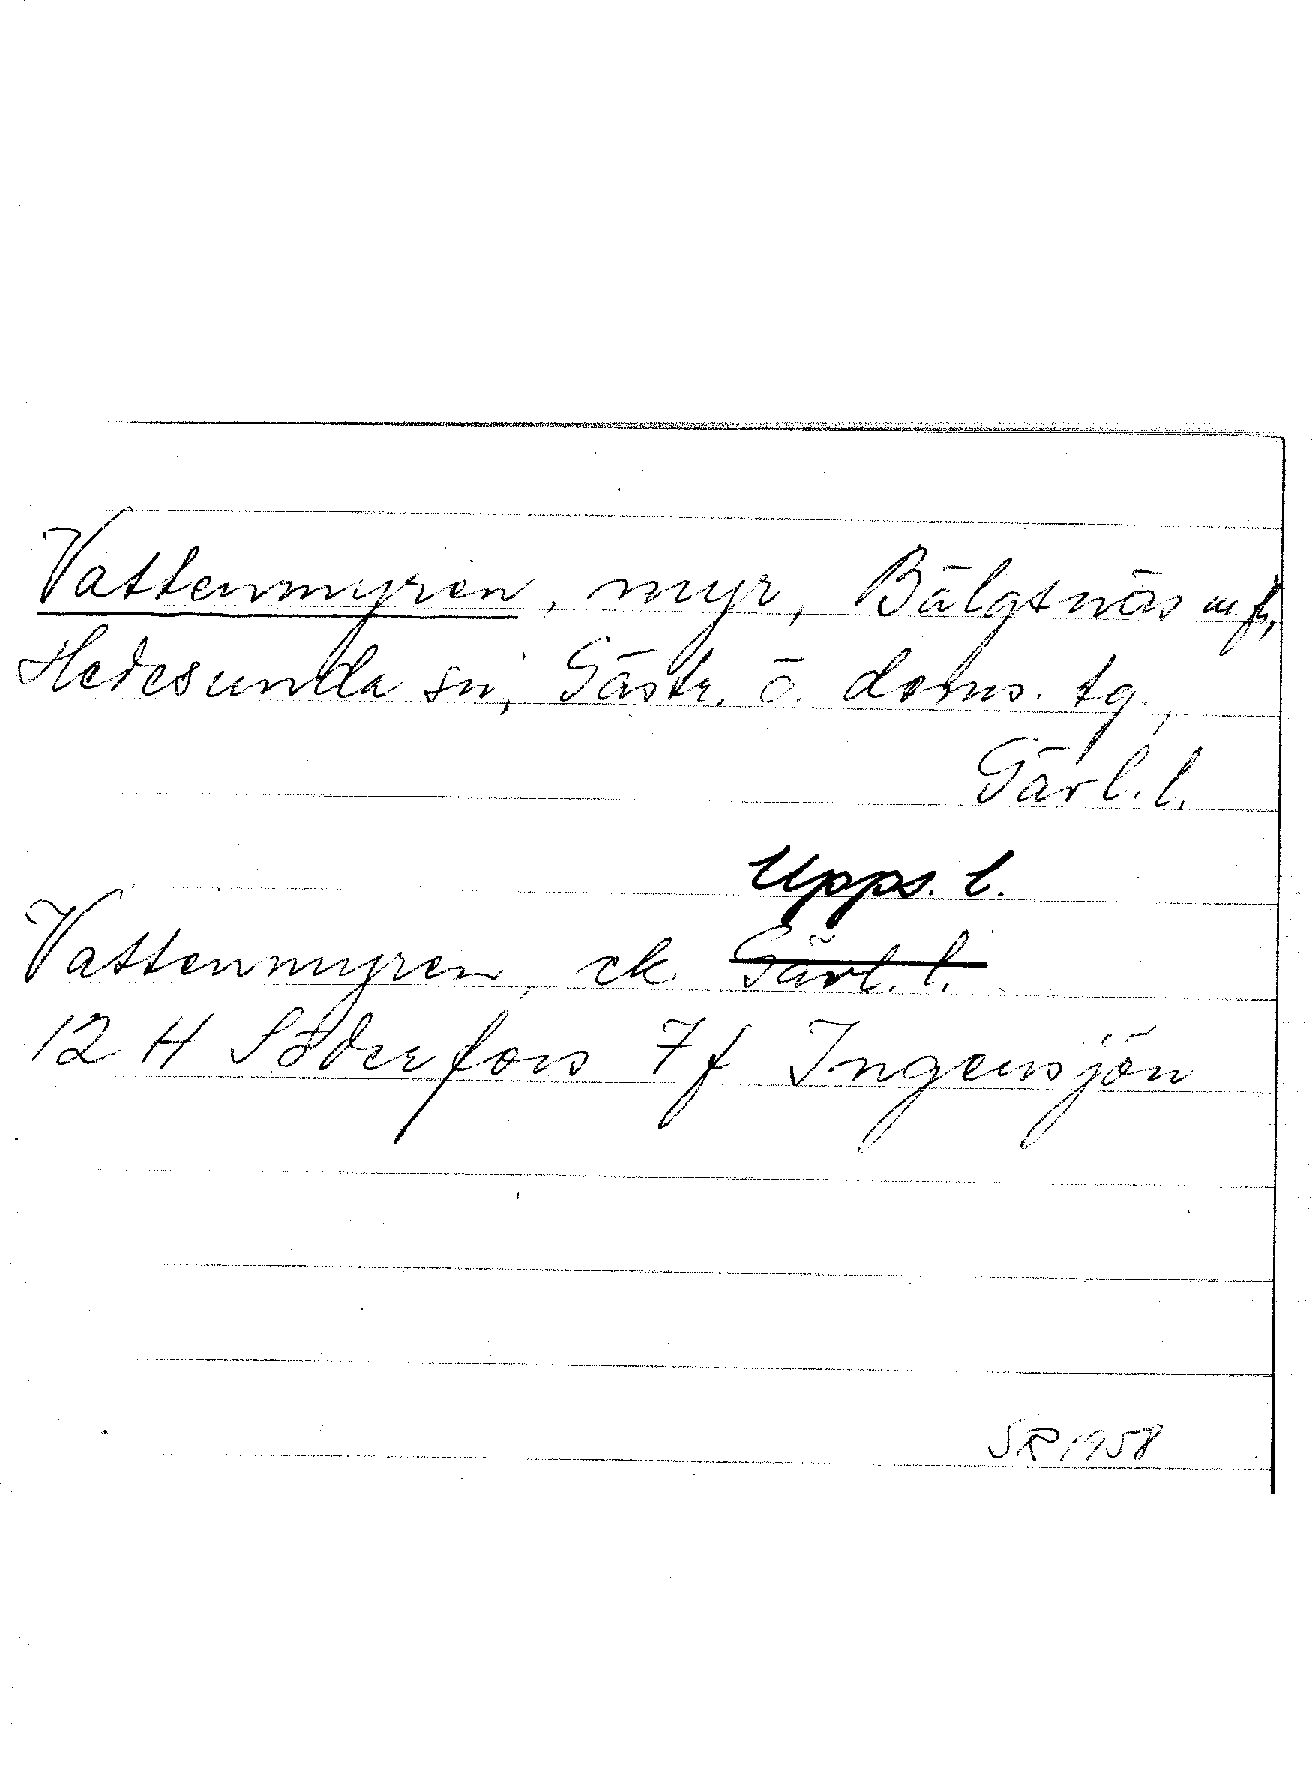 Vattenmyren, myr, Bälgsnäs m fl,
Hedesunda sn, Gästr. ö. doms. tg,
Gävl. l.
Upps. l.
Vattenmyren, ek Gävl. l.
12 H Söderfors 7f Ingensjön
SR 1958